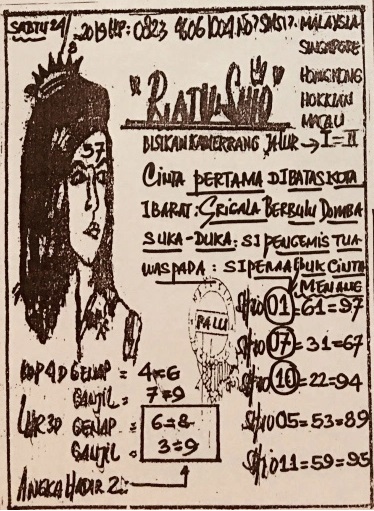 SABTU 24/8
2019 HP: 0823
MALAYSIA
SINGAPORE
HONGKONG
HOKKIAN
MACAU
"RATU SHIO"
BISIKAN KAWERRANG JALUR → I = II
CINTA PERTAMA DIBATAS KOTA
IBARAT: SRIGALA BERBULU DOMBA
SUKA-DUKA: SI PENGEMIS TUA
WASPADA: SI PEMABUK CINTA
37
MENANG
PALU
SHIO 01 = 61 = 97
SHIO 07 = 31 = 67
SHIO 10 = 22 = 94
SHIO 05 = 53 = 89
SHIO 11 = 59 = 95
KOP 4D GENAP = 4 = 6
GANJIL = 7 = 9
EKOR 3D GENAP = 6 = 8
GANJIL = 3 = 9
ANGKA HADIR 2: